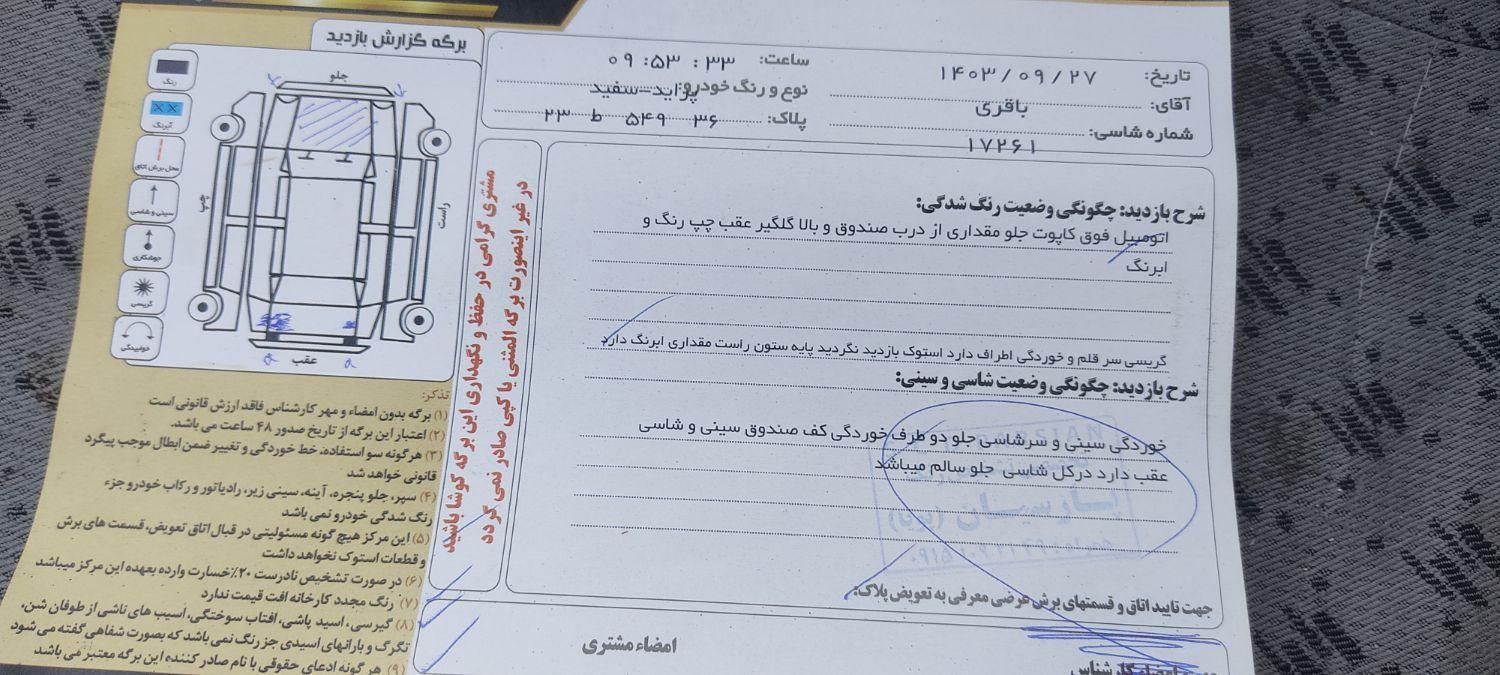 برگه گزارش بازدید
تاریخ: ۱۴۰۳/۰۹/۲۷
ساعت: ۰۹:۵۳:۳۳
آقای: باقری
نوع و رنگ خودرو: پراید-سفید
شماره شاسی: ۱۷۲۶۱
پلاک: ۳۶ ۵۴۹ ط ۲۳
جلو
راست
چپ
عقب
رنگ
آبرنگ
محل برش اتاق
سینی و شاسی
جوشکاری
گریسی
خوابیدگی
مشتری گرامی در حفظ و نگهداری این برگه کوشا باشید
در غیر اینصورت برگه المثنی یا کپی صادر نمی گردد
شرح بازدید: چگونگی وضعیت رنگ شدگی:
اتومبیل فوق کاپوت جلو مقداری از درب صندوق و بالا گلگیر عقب چپ رنگ و
ابرنگ
گریسی سر قلم و خوردگی اطراف دارد استوک بازدید نگردید پایه ستون راست مقداری ابرنگ دارد
شرح بازدید: چگونگی وضعیت شاسی و سینی:
خوردگی سینی و سرشاسی جلو دو طرف خوردگی کف صندوق سینی و شاسی
عقب دارد درکل شاسی جلو سالم میباشد
پارسیان
جهت تایید اتاق و قسمتهای برش عرضی معرفی به تعویض پلاک:
امضاء مشتری
امضاء کارشناس
تذکر:
(۱) برگه بدون امضاء و مهر کارشناس فاقد ارزش قانونی است
(۲) اعتبار این برگه از تاریخ صدور ۴۸ ساعت می باشد.
(۳) هرگونه سو استفاده، خط خوردگی و تغییر ضمن ابطال موجب پیگرد
قانونی خواهد شد
(۴) سپر، جلو پنجره، آینه، سینی زیر، رادیاتور و رکاب خودرو جزء
رنگ شدگی خودرو نمی باشد
(۵) این مرکز هیچ گونه مسئولیتی در قبال اتاق تعویض، قسمت های برش
و قطعات استوک نخواهد داشت
(۶) در صورت تشخیص نادرست ۲۰٪ خسارت وارده بعهده این مرکز میباشد
(۷) رنگ مجدد کارخانه افت قیمت ندارد
(۸) گیرسی، اسید پاشی، افتاب سوختگی، آسیب های ناشی از طوفان شن،
تگرگ و بارانهای اسیدی جز رنگ نمی باشد که بصورت شفاهی گفته می شود
(۹) هر گونه ادعای حقوقی با نام صادر کننده این برگه معتبر می باشد